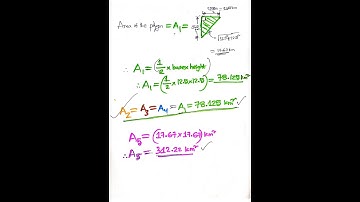 Area of the polygon = A₁ =
= 17.67 km
∴ A₁ = (1/2 × base × height)
∴ A₁ = (1/2 × 12.5 × 12.5) = 78.125 km²
A₂ = A₃ = A₄ = A₁ = 78.125 km²
A₅ = (17.67 × 17.67) km²
∴ A₅ = 312.22 km²